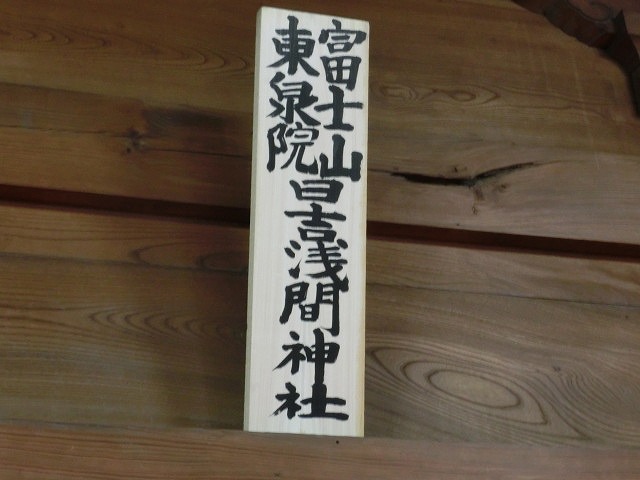 富士山
東泉院
日吉浅間神社